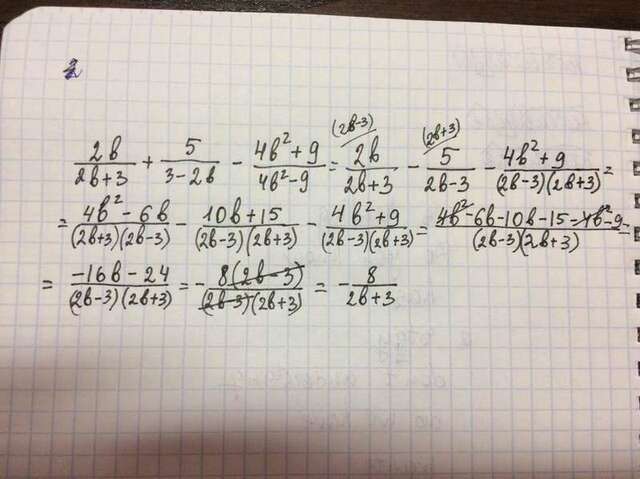 2
(2b-3) (2b+3)
2b/(2b+3) + 5/(3-2b) - (4b²+9)/(4b²-9) = 2b/(2b+3) - 5/(2b-3) - (4b²+9)/((2b-3)(2b+3)) =
= (4b²-6b)/((2b+3)(2b-3)) - (10b+15)/((2b-3)(2b+3)) - (4b²+9)/((2b-3)(2b+3)) = (4b²-6b-10b-15-4b²-9)/((2b-3)(2b+3)) =
= (-16b-24)/((2b-3)(2b+3)) = - 8(2b-3)/((2b-3)(2b+3)) = - 8/(2b+3)